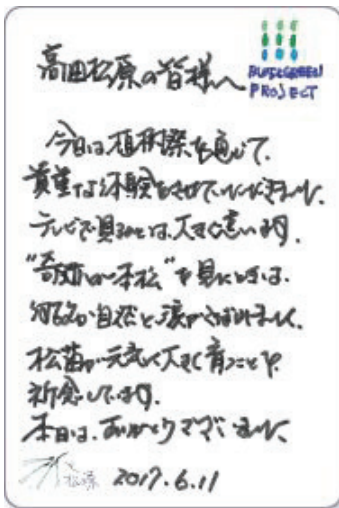 高田松原の皆様へ
BLUE&GREEN
PROJECT
今日は植樹祭を通じて、
貴重な体験をさせていただきました。
テレビで見るのとは、大きく違います。
"奇跡の一本松"を見たときは、
何故か自然と涙がこぼれました。
松苗が元気に大きく育つことを
祈念しています。
本日は、ありがとうございました。
松原 2017.6.11